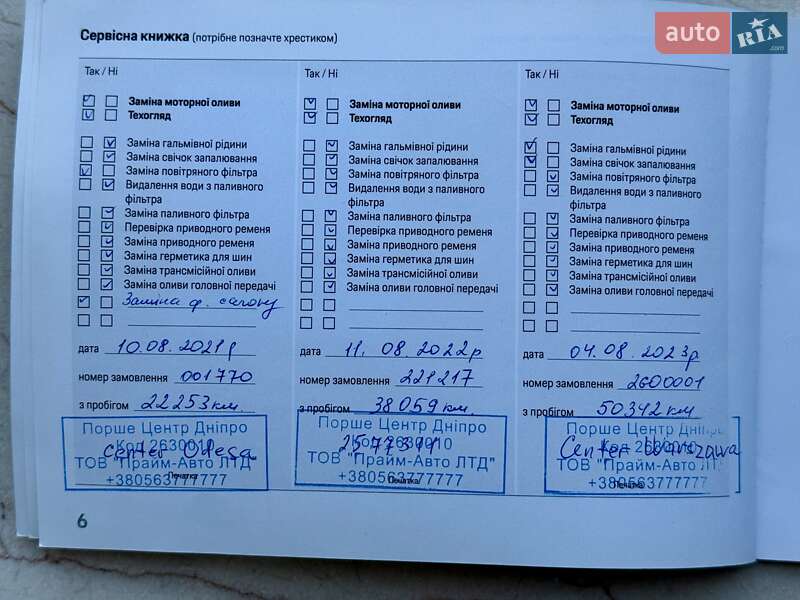 Сервісна книжка (потрібне позначте хрестиком)
auto RIA.com
Так / Ні
Заміна моторної оливи
Техогляд
Заміна гальмівної рідини
Заміна свічок запалювання
Заміна повітряного фільтра
Видалення води з паливного
фільтра
Заміна паливного фільтра
Перевірка приводного ременя
Заміна приводного ременя
Заміна герметика для шин
Заміна трансмісійної оливи
Заміна оливи головної передачі
Заміна ф. салону
дата 10.08.2021р
номер замовлення 001770
з пробігом 22253км.
Порше Центр Дніпро
Код 2630010
center Odesa
ТОВ "Прайм-Авто ЛТД"
Печатка
+380563777777
Так / Ні
Заміна моторної оливи
Техогляд
Заміна гальмівної рідини
Заміна свічок запалювання
Заміна повітряного фільтра
Видалення води з паливного
фільтра
Заміна паливного фільтра
Перевірка приводного ременя
Заміна приводного ременя
Заміна герметика для шин
Заміна трансмісійної оливи
Заміна оливи головної передачі
дата 11.08.2022р
номер замовлення 221217
з пробігом 38059км.
Порше Центр Дніпро
Код 2630010
ТОВ "Прайм-Авто ЛТД"
Печатка
+380563777777
Так / Ні
Заміна моторної оливи
Техогляд
Заміна гальмівної рідини
Заміна свічок запалювання
Заміна повітряного фільтра
Видалення води з паливного
фільтра
Заміна паливного фільтра
Перевірка приводного ременя
Заміна приводного ременя
Заміна герметика для шин
Заміна трансмісійної оливи
Заміна оливи головної передачі
дата 04.08.2023р
номер замовлення 2600001
з пробігом 50342км.
Порше Центр Дніпро
Код 2630010
Center Warszawa
ТОВ "Прайм-Авто ЛТД"
Печатка
+380563777777
6